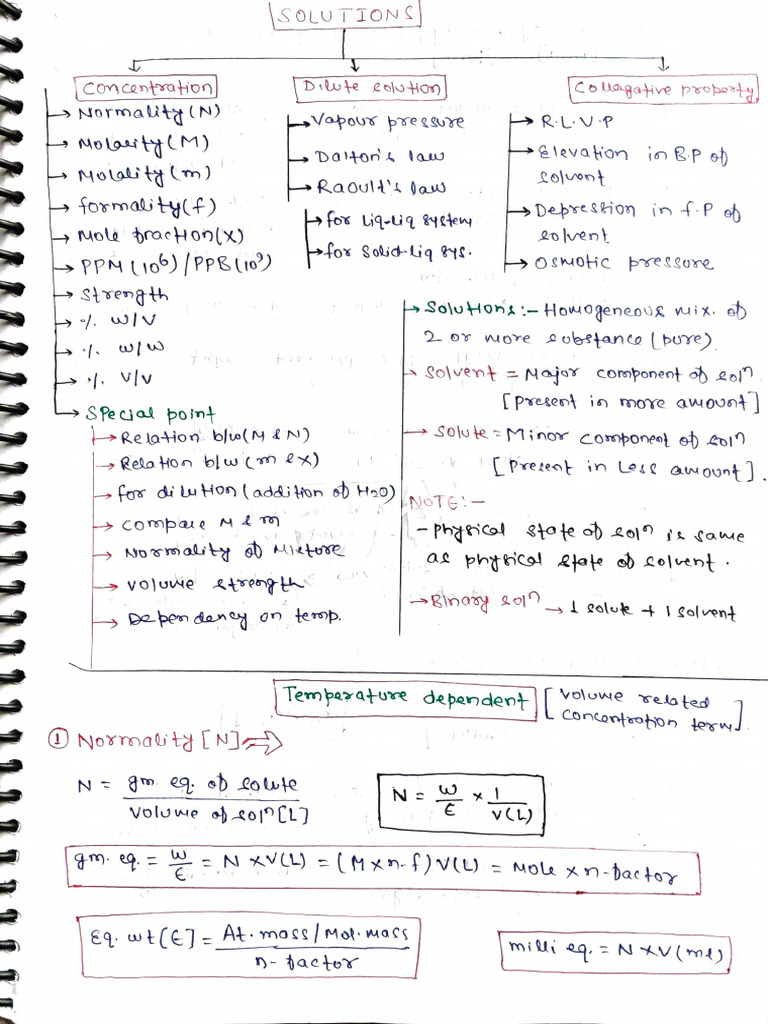 SOLUTIONS
Concentration
→ Normality (N)
→ Molarity (M)
→ Molality (m)
→ formality (f)
→ Mole fraction (x)
→ PPM (10⁶) / PPB (10⁹)
→ Strength
→ % W/V
→ % W/W
→ % V/V
→ Special point
→ Relation b/w (M & N)
→ Relation b/w (m & x)
→ for dilution (addition of H2O)
→ Compare M & m
→ Normality of Mixture
→ Volume strength
→ Dependency on temp.
Dilute solution
→ Vapour pressure
→ Dalton's law
→ Raoult's law
→ for Liq-Liq system
→ for Solid-Liq sys.
Collagative property
→ R.L.V.P
→ Elevation in B.P of
solvent
→ Depression in f.P of
solvent
→ Osmotic pressure
→ Solutions :- Homogeneous mix. of
2 or more substance (pure)
→ Solvent = Major component of solⁿ
[present in more amount]
→ Solute = Minor component of solⁿ
[present in Less amount].
NOTE :-
- physical state of solⁿ is same
as physical state of solvent.
→ Binary solⁿ → 1 solute + 1 solvent
Temperature dependent [Volume related
concentration term].
① Normality [N] ⇒
N = gm. eq. of solute / Volume of solⁿ [L]
N = W/E × 1/V(L)
gm. eq. = W/E = N × V(L) = (M × n-f) V(L) = Mole × n-factor
Eq. wt [E] = At. mass / Mol. mass / n-factor
milli eq. = N × V(ml)